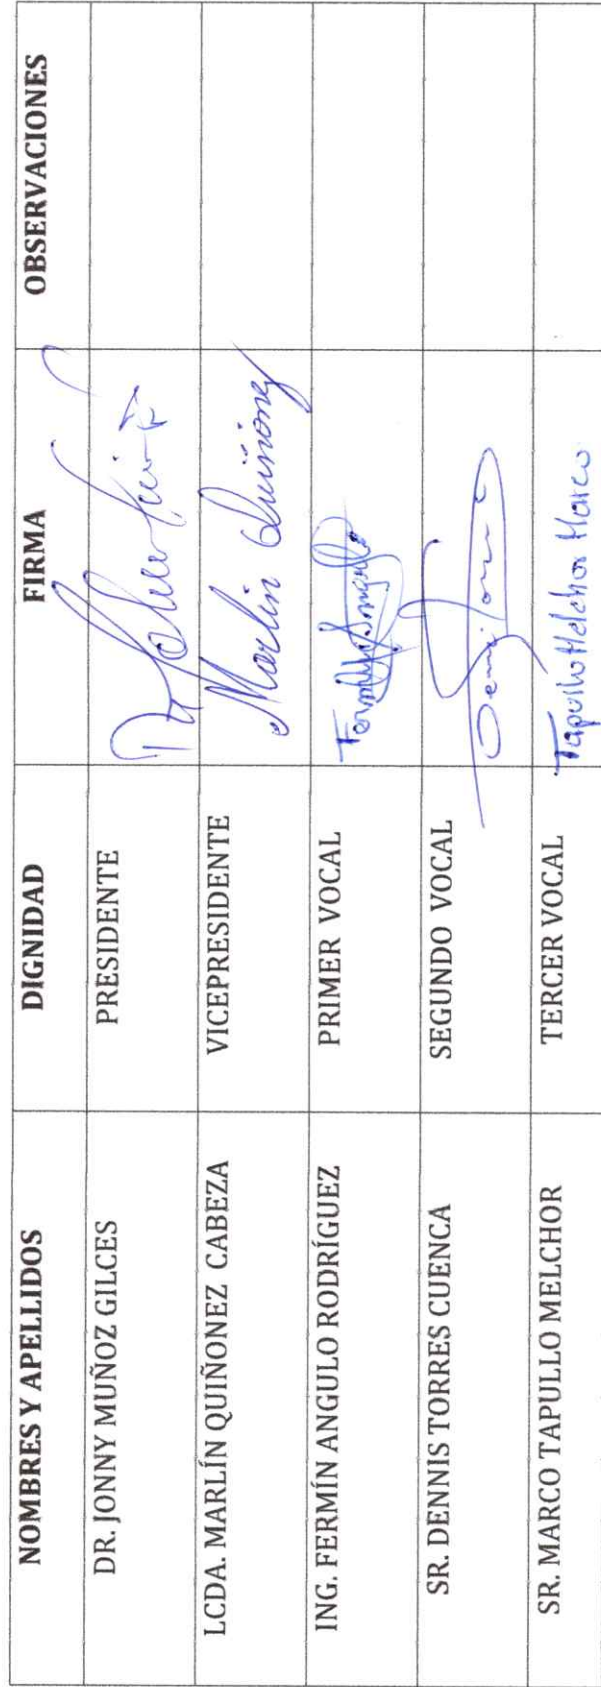 NOMBRES Y APELLIDOS DIGNIDAD FIRMA OBSERVACIONES
DR. JONNY MUÑOZ GILCES PRESIDENTE
LCDA. MARLÍN QUIÑONEZ CABEZA VICEPRESIDENTE Marlin Quiñonez
ING. FERMÍN ANGULO RODRÍGUEZ PRIMER VOCAL
SR. DENNIS TORRES CUENCA SEGUNDO VOCAL
SR. MARCO TAPULLO MELCHOR TERCER VOCAL Tapullo Melchor Marco